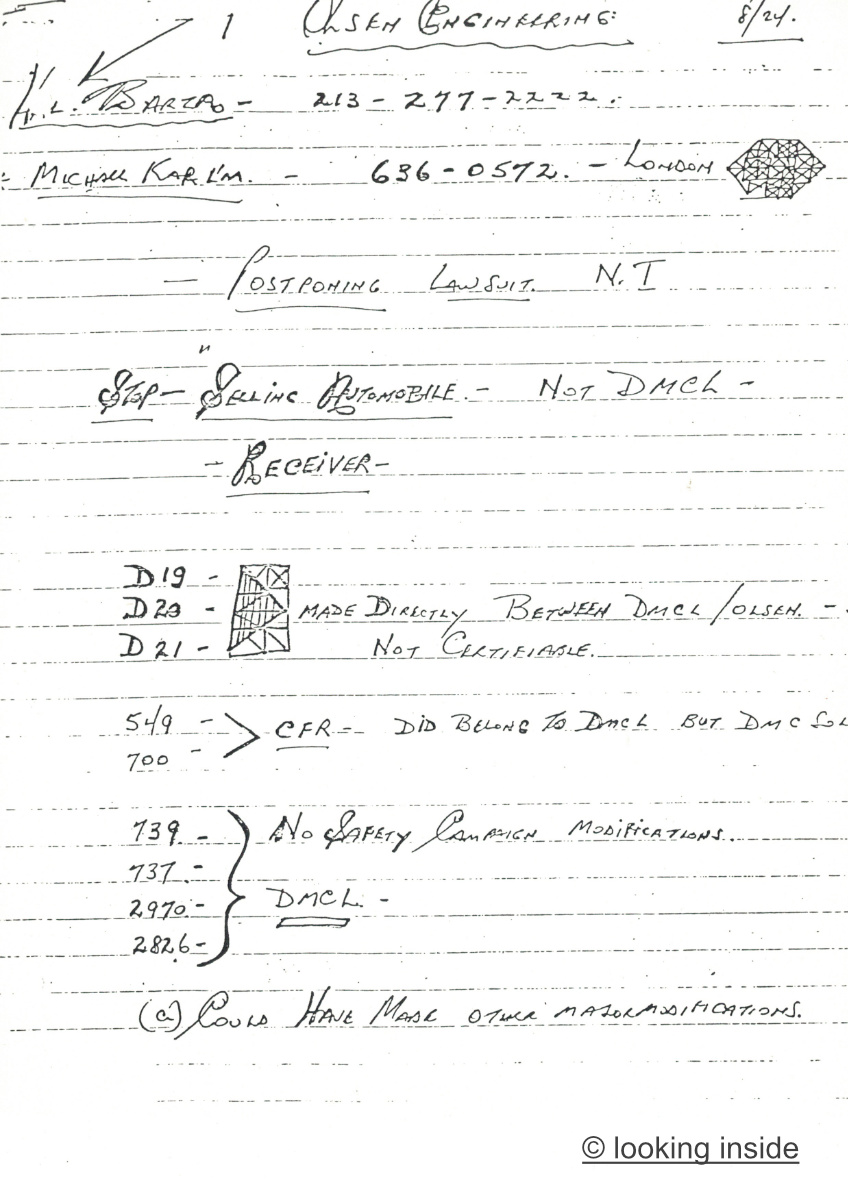 1 Olsen Engineering: 8/24.
L. Barta - 213-277-2222.
: Michael Karlim. - 636-0572. - London
- Postponing Lawsuit. N.I
Stop - "Selling Automobile. - Not DMCL -
- Receiver -
D19 -
D20 - Made Directly Between DMCL/Olsen. -
D21 - Not Certifiable.
549 - > CFR - Did Belong To DMCL But DMC Sol
700 -
739. - No Safety Campaign Modifications.
737. -
2970. - DMCL. -
2826 -
(a) Could Have Made other major modifications.
© looking inside